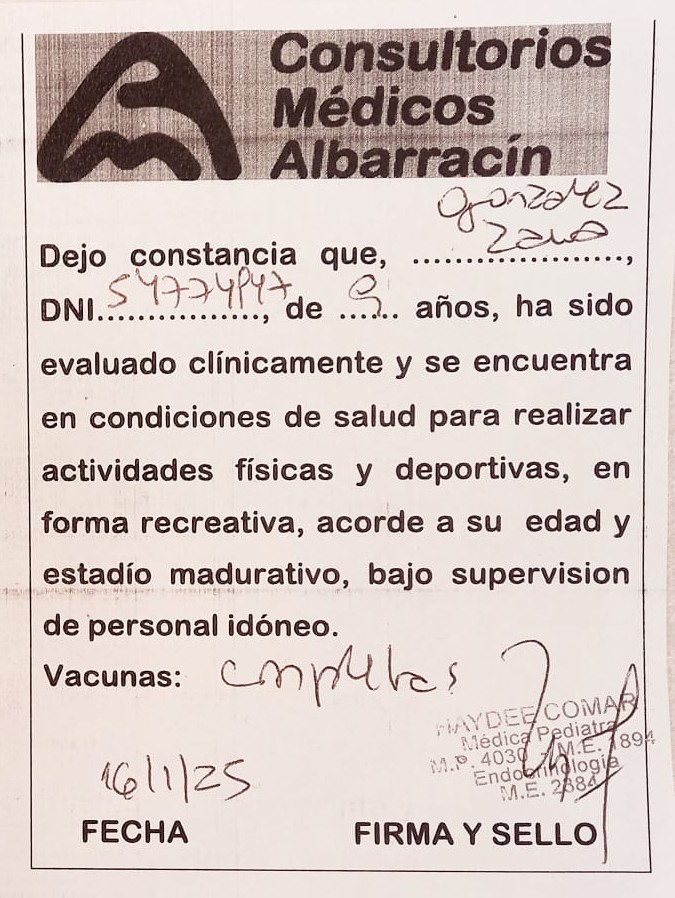 Consultorios
Médicos
Albarracín
Gonzalez
Dejo constancia que, ....................,
DNI................, de ...... años, ha sido
evaluado clínicamente y se encuentra
en condiciones de salud para realizar
actividades físicas y deportivas, en
forma recreativa, acorde a su edad y
estadío madurativo, bajo supervision
de personal idóneo.
Vacunas: completas
HAYDEE COMAR
Médica Pediatra
M.P. 4030 - M.E. 1894
Endocrinología
M.E. 2884
16/1/25
FECHA FIRMA Y SELLO